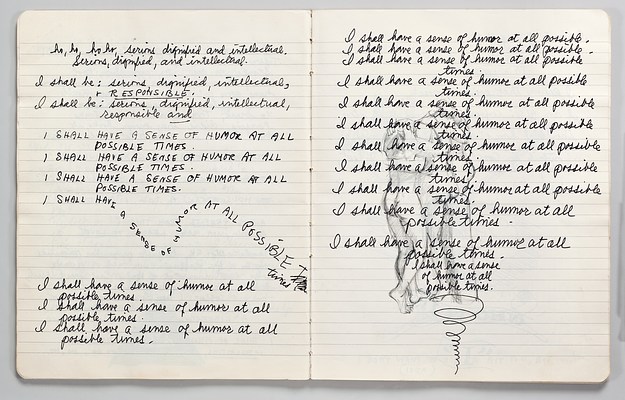 ho, ho, ho ho, serious dignified and intellectual.
Serious, dignified, and intellectual.
I shall be: serious, dignified, intellectual,
RESPONSIBLE.
I shall be: serious, dignified, intellectual,
responsible and
I SHALL HAVE A SENSE OF HUMOR AT ALL
POSSIBLE TIMES.
I SHALL HAVE A SENSE OF HUMOR AT ALL
POSSIBLE TIMES.
I SHALL HAVE A SENSE OF HUMOR AT ALL
POSSIBLE TIMES.
I SHALL HAVE A SENSE OF HUMOR AT ALL POSSIBLE
times
I shall have a sense of humor at all
possible times.
I shall have a sense of humor at all
possible times.
I shall have a sense of humor at all
possible times.
I shall have a sense of humor at all possible.
I shall have a sense of humor at all possible.
I shall have a sense of humor at all possible
times.
I shall have a sense of humor at all possible
times.
I shall have a sense of humor at all possible
times.
I shall have a sense of humor at all possible
times.
I shall have a sense of humor at all possible
times.
I shall have a sense of humor at all possible
times.
I shall have a sense of humor at all possible
times.
I shall have a sense of humor at all
possible times.
I shall have a sense of humor at all
possible times.
I shall have a sense
of humor at all
possible times.